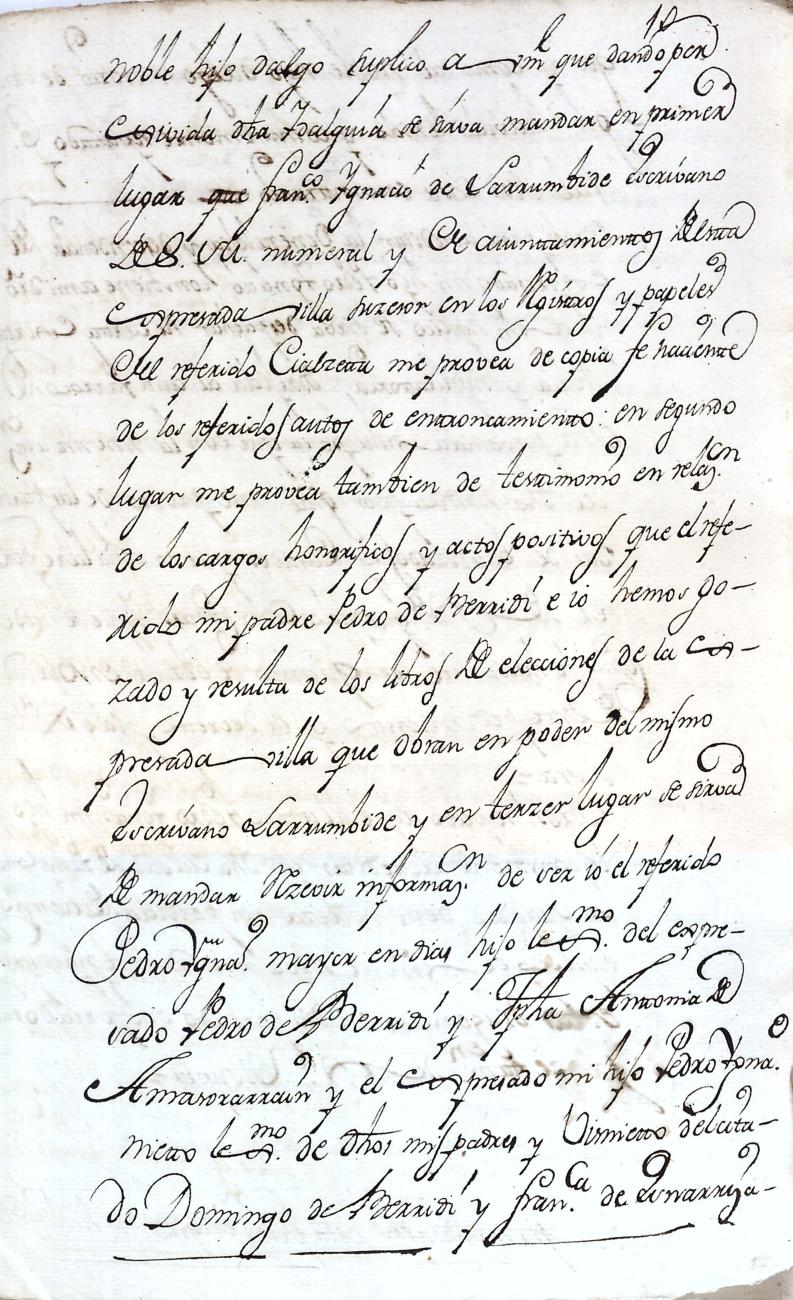 noble hijo dalgo suplico a vm que dandoper
cxivida dha Ydalguia se sirva mandar en primer
lugar que fran.co Ygnacio de Larrumbide Escrivano
de S. M. numeral y de aiuntamientos de esta
expresada villa suzesor en los Registros y papeles
del referido me provea de copia fe haciente
de los referidos autos de entroncamiento: en segundo
lugar me provea tambien de testimonio en relaz.on
de los cargos honorificos y actos positivos que el refe-
rido mi padre Pedro de Berridi e io hemos go-
zado y resulta de los libros de elecciones de la ex-
presada villa que obran en poder del mismo
Escrivano Larrumbide y en terzer lugar se sirva
de mandar Rezevir informaz.on de ver io el referido
Pedro Ygna.o mayor en dias hijo lexmo. del expre-
sado Pedro de Berridi y Jpha Antonia de
Amasorarrain y el expresado mi hijo Pedro Ygna.o
nieto lexmo. de dhos mis padres y Visnieto del cita-
do Domingo de Berridi y fran.ca de